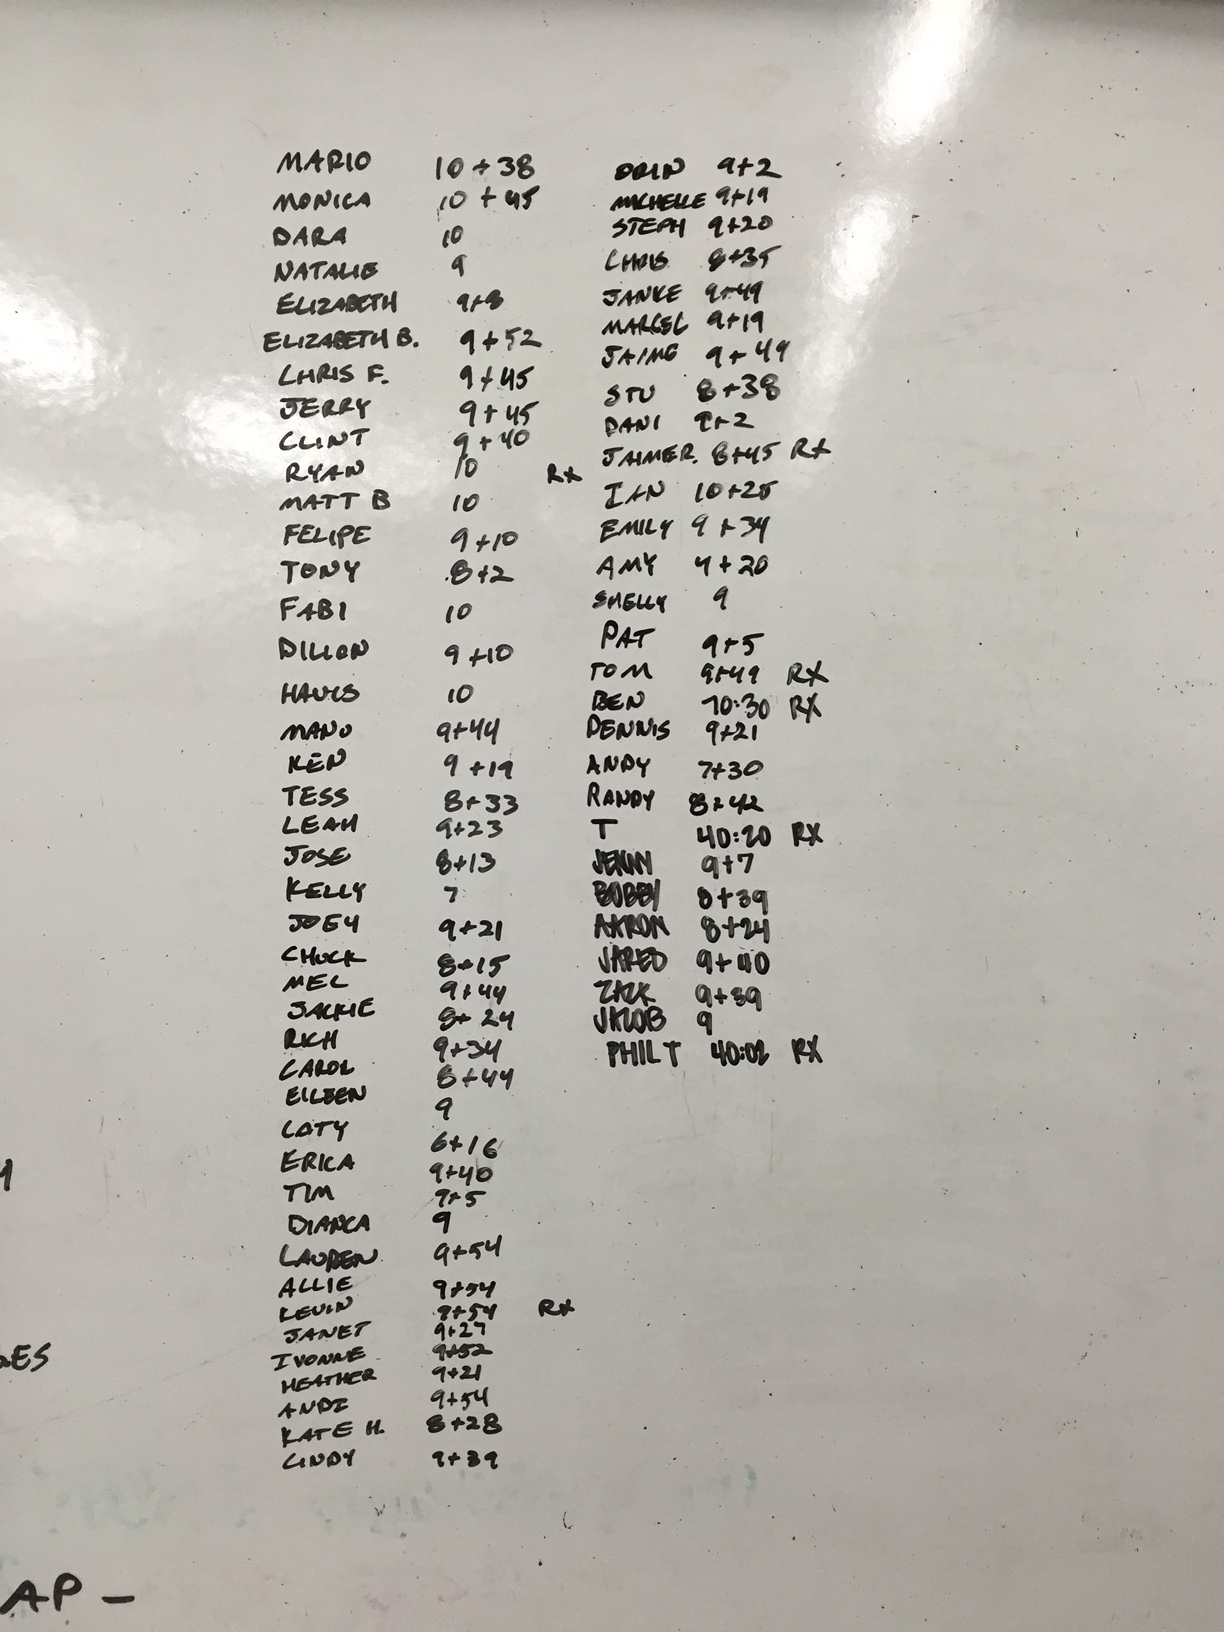 MARIO 10+38
MONICA 10+45
DARA 10
NATALIE 9
ELIZABETH 9+8
ELIZABETH B. 9+52
CHRIS F. 9+45
JERRY 9+45
CLINT 9+40
RYAN 10 RX
MATT B 10
FELIPE 9+10
TONY 8+2
FABI 10
DILLON 9+10
10
MANO 9+44
KEN 9+19
TESS 8+33
LEAH 9+23
JOSE 8+13
KELLY 7
JOEY 9+21
CHUCK 8+15
MEL 9+44
JACKIE 8+24
RICH 9+34
CAROL 8+44
EILEEN 9
CATY 6+16
ERICA 9+40
TIM 9+5
DIANCA 9
LAUREN 9+54
ALLIE 9+54
KEVIN 9+54 RX
JANET 9+27
IVONNE 9+52
HEATHER 9+21
ANDI 9+54
KATE H. 8+28
CINDY 9+39
ORIN 9+2
MICHELLE 9+19
STEPH 9+20
CHRIS 8+35
JANKE 9+49
MARCEL 9+19
JAIME 9+49
STU 8+38
DANI 9+2
JAIMER. 8+45 RX
IAN 10+25
EMILY 9+34
AMY 4+20
SHELLY 9
PAT 9+5
TOM 9+49 RX
BEN RX
DENNIS 9+21
ANDY 7+30
RANDY 8+42
T 40:20 RX
JENNY 9+7
BOBBY 8+39
AARON 8+24
JARED 9+40
ZACK 9+39
JACOB 9
PHIL T 40:02 RX
AP -